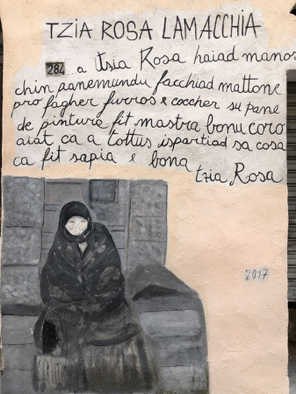 TZIA ROSA LAMACCHIA
284 ..a tzia Rosa haiad manos
chin panemundu facchiad mattone
pro fagher furros e coccher su pane
de pintura fit mastra bonu coro
aiat ca a tottus ispartiad sa cosa
ca fit sapia e bona
tzia Rosa
2017